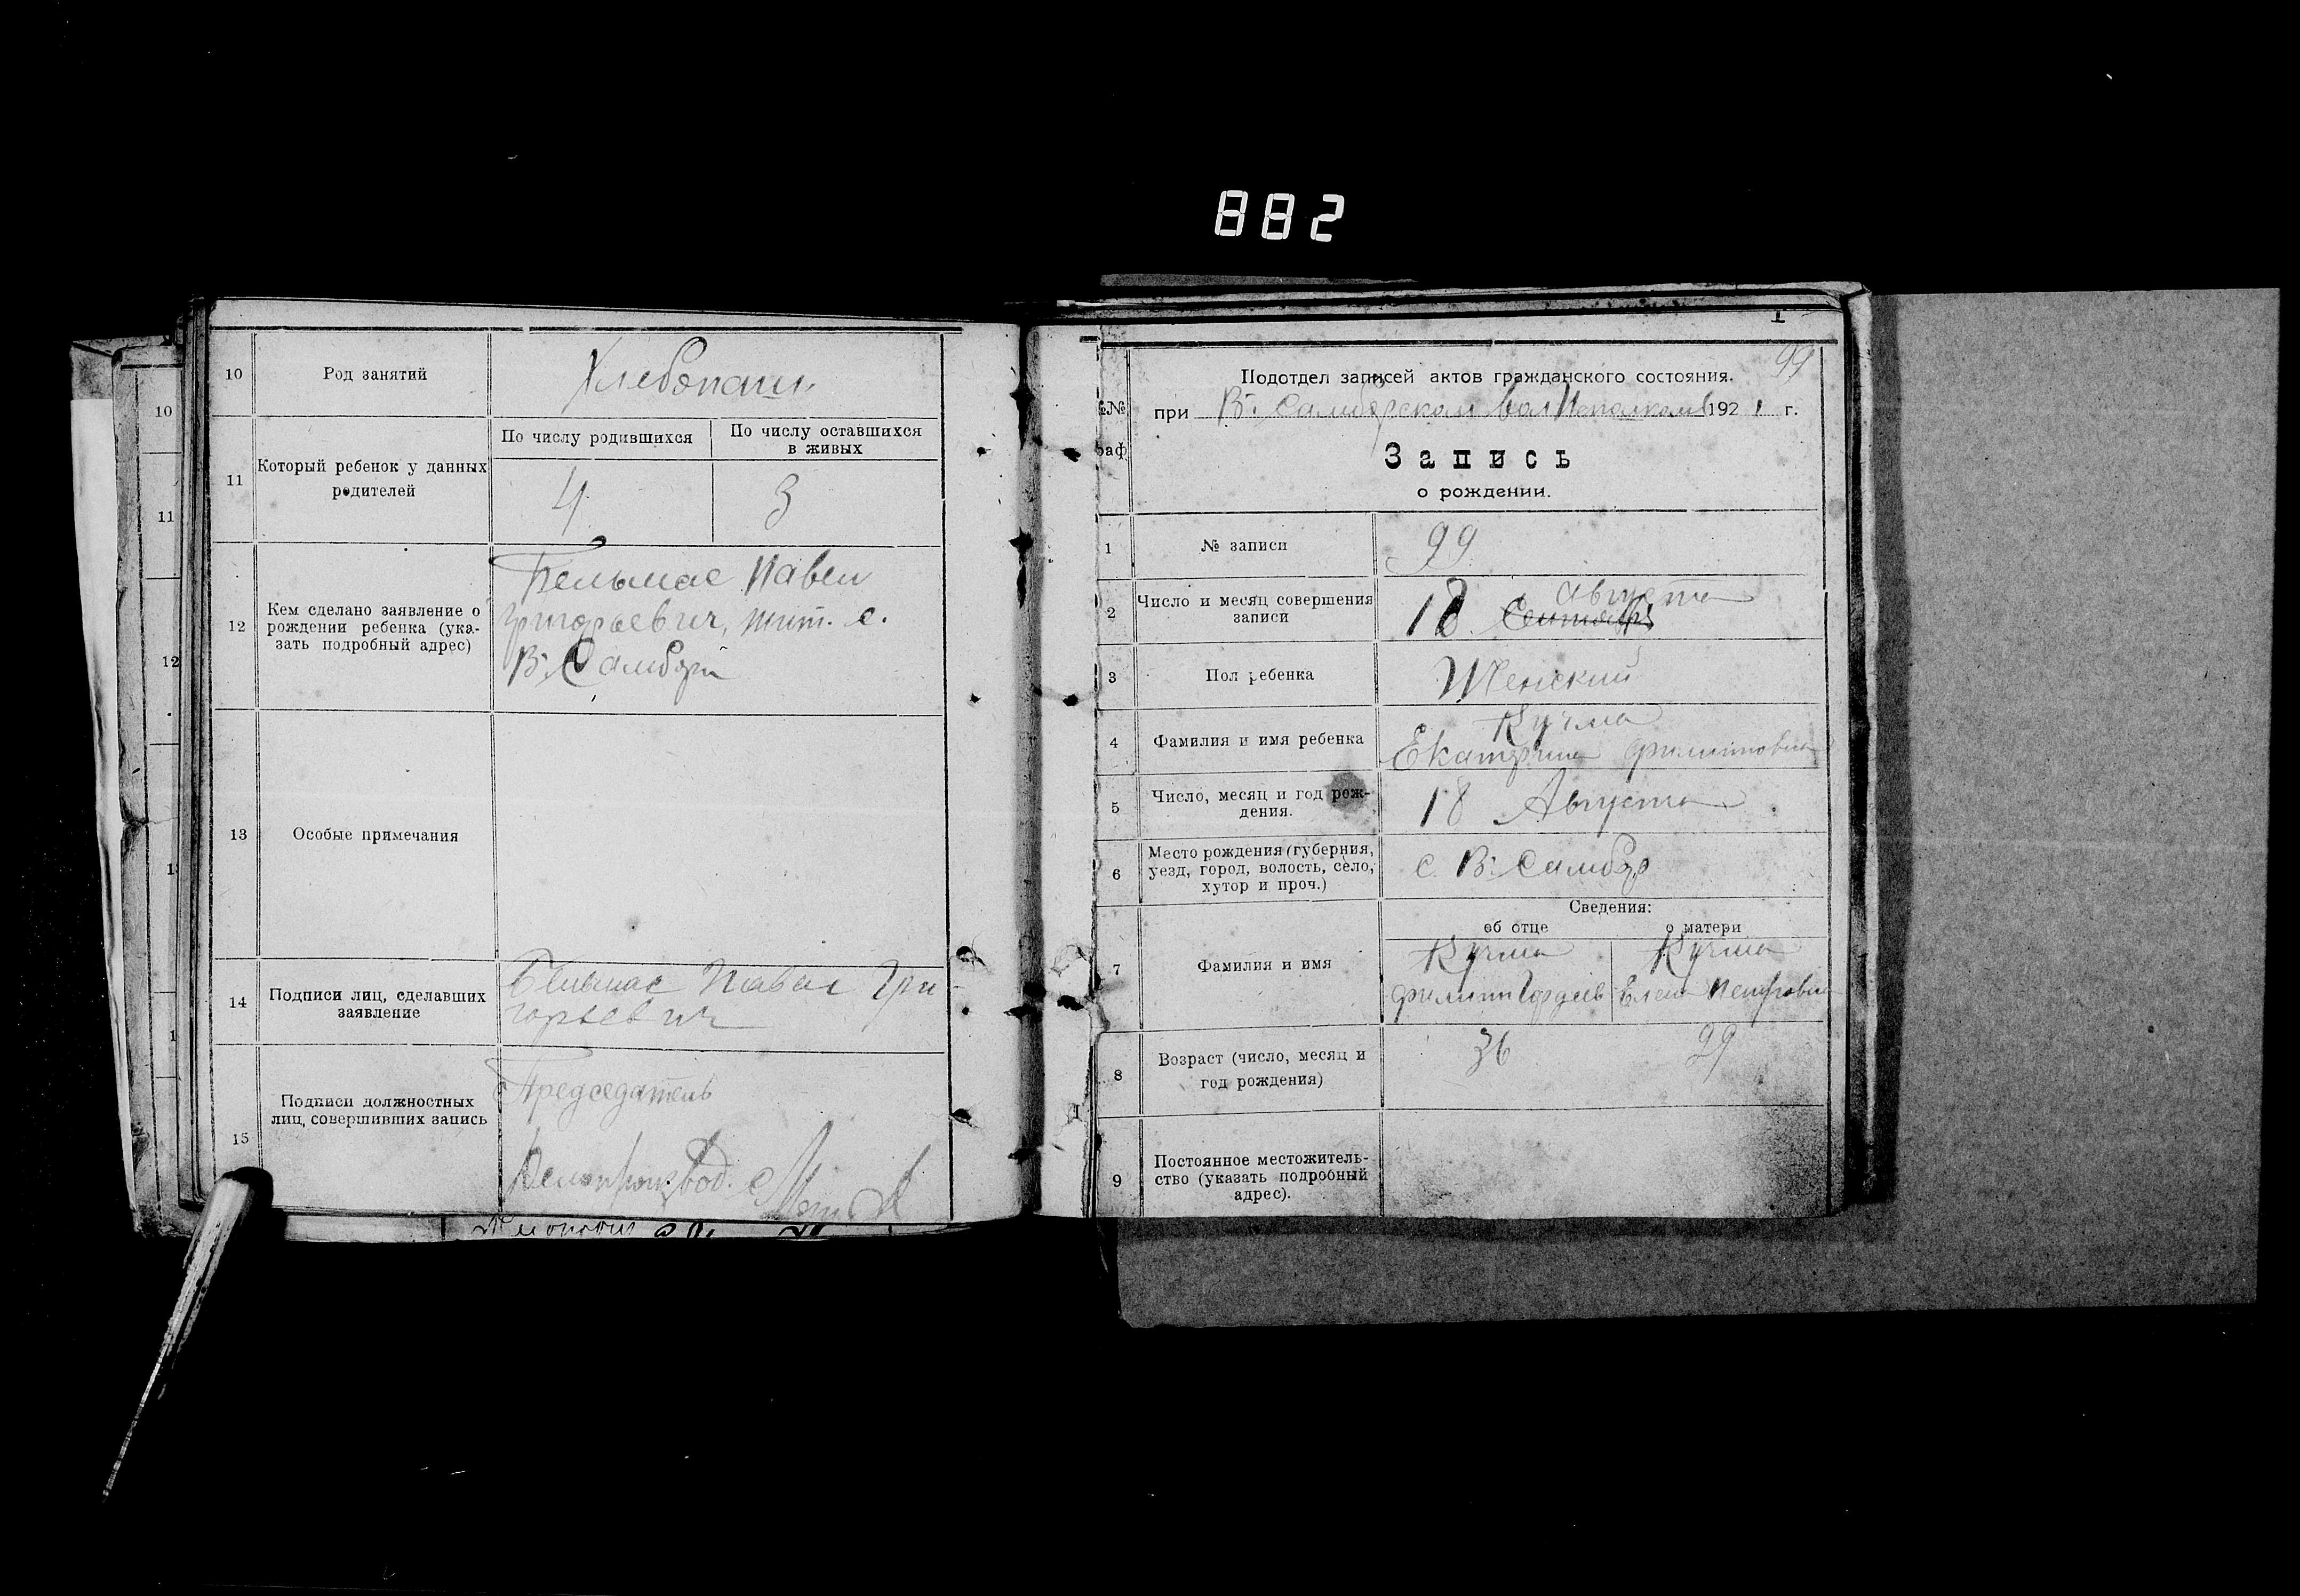 882
10
Род занятий
Хлебопаш.
11
Который ребенок у данных
родителей
По числу родившихся
По числу оставшихся
в живых
4
3
12
Кем сделано заявление о
рождении ребенка (ука-
зать подробный адрес)
Бельмас Павел
Григорьевич, жит. с.
В. Самбор
13
Особые примечания
14
Подписи лиц, сделавших
заявление
Бельмас Павел Гри
горьевич
15
Подписи должностных
лиц, совершивших запись
Председатель
Делопроизвод.
10
11
12
99
Подотдел записей актов гражданского состояния.
№
при В. Самборском волисполкоме 1921 г.
раф
Запись
о рождении.
1
№ записи
99
2
Число и месяц совершения
записи
Августа
18 Сентября
3
Пол ребенка
Женский
4
Фамилия и имя ребенка
Кучма
Екатерина Филиповна
5
Число, месяц и год рож-
дения.
18 Августа
6
Место рождения (губерния,
уезд, город, волость, село,
хутор и проч.)
с. В. Самбор
Сведения:
об отце
о матери
7
Фамилия и имя
Кучма
Кучма
Филипп Гордеев
Елена Петровна
8
Возраст (число, месяц и
год рождения)
36
29
9
Постоянное местожитель-
ство (указать подробный
адрес).